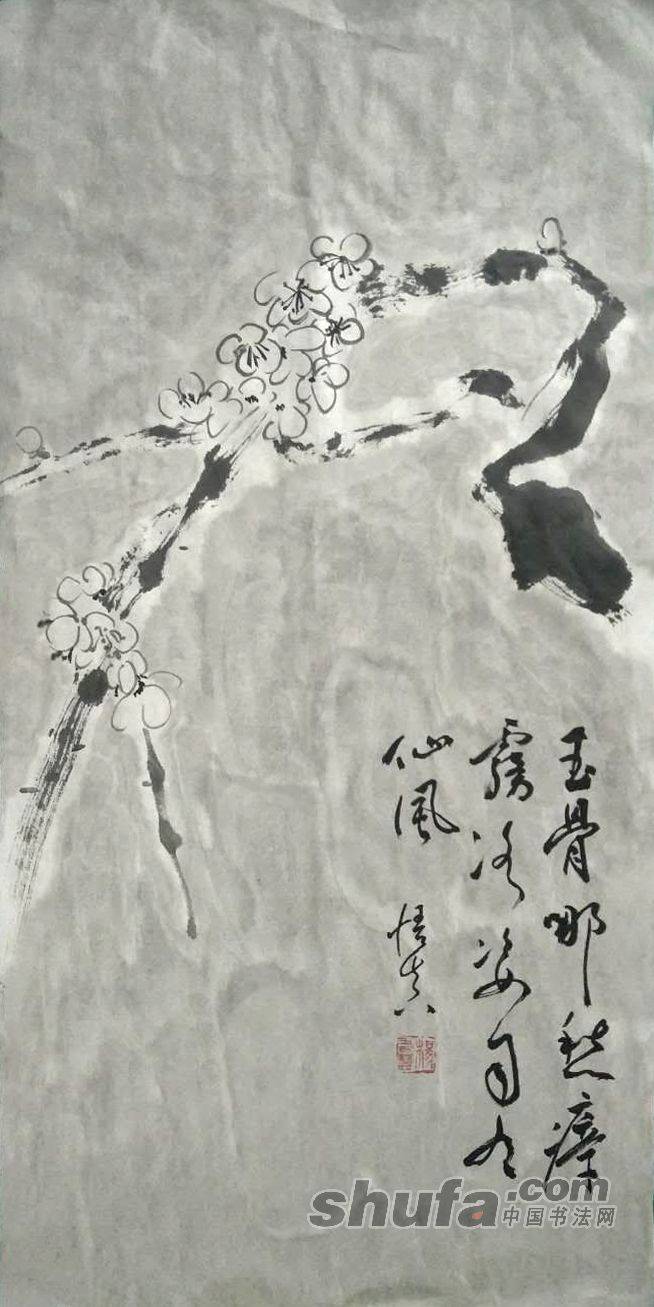 玉骨哪愁瘴
霧冰姿自有
仙風
悟真
shufa.com
中国书法网